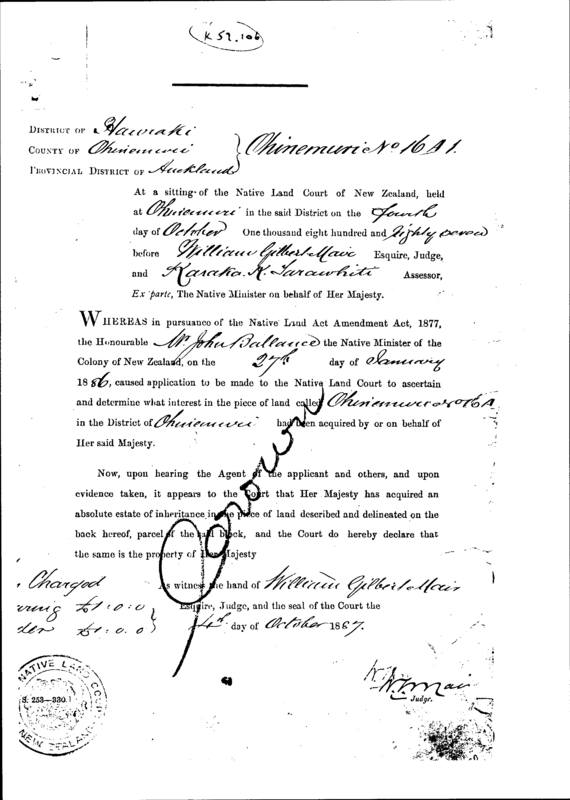 K 52.106
DISTRICT OF Hauraki
COUNTY OF Ohinemuri
PROVINCIAL DISTRICT OF Auckland
Ohinemuri No 16A1.
At a sitting of the Native Land Court of New Zealand, held
at Ohinemuri in the said District on the fourth
day of October One thousand eight hundred and Eighty seven
before William Gilbert Mair Esquire, Judge,
and Karaka. K. Tarawhiti Assessor,
Ex parte, The Native Minister on behalf of Her Majesty.
WHEREAS in pursuance of the Native Land Act Amendment Act, 1877,
the Honourable Mr John Ballance the Native Minister of the
Colony of New Zealand, on the 27th day of January
1886, caused application to be made to the Native Land Court to ascertain
and determine what interest in the piece of land called Ohinemuri No 16A
in the District of Ohinemuri had been acquired by or on behalf of
Her said Majesty.
Now, upon hearing the Agent of the applicant and others, and upon
evidence taken, it appears to the Court that Her Majesty has acquired an
absolute estate of inheritance in the piece of land described and delineated on the
back hereof, parcel of the said block, and the Court do hereby declare that
the same is the property of Her Majesty
Crown
Charged
£1:0:0
£1:0.0
As witness the hand of William Gilbert Mair
Esquire, Judge, and the seal of the Court the
4th day of October 1887.
NATIVE LAND COURT
S. 253—330.
NEW ZEALAND
W. G. Mair
Judge.